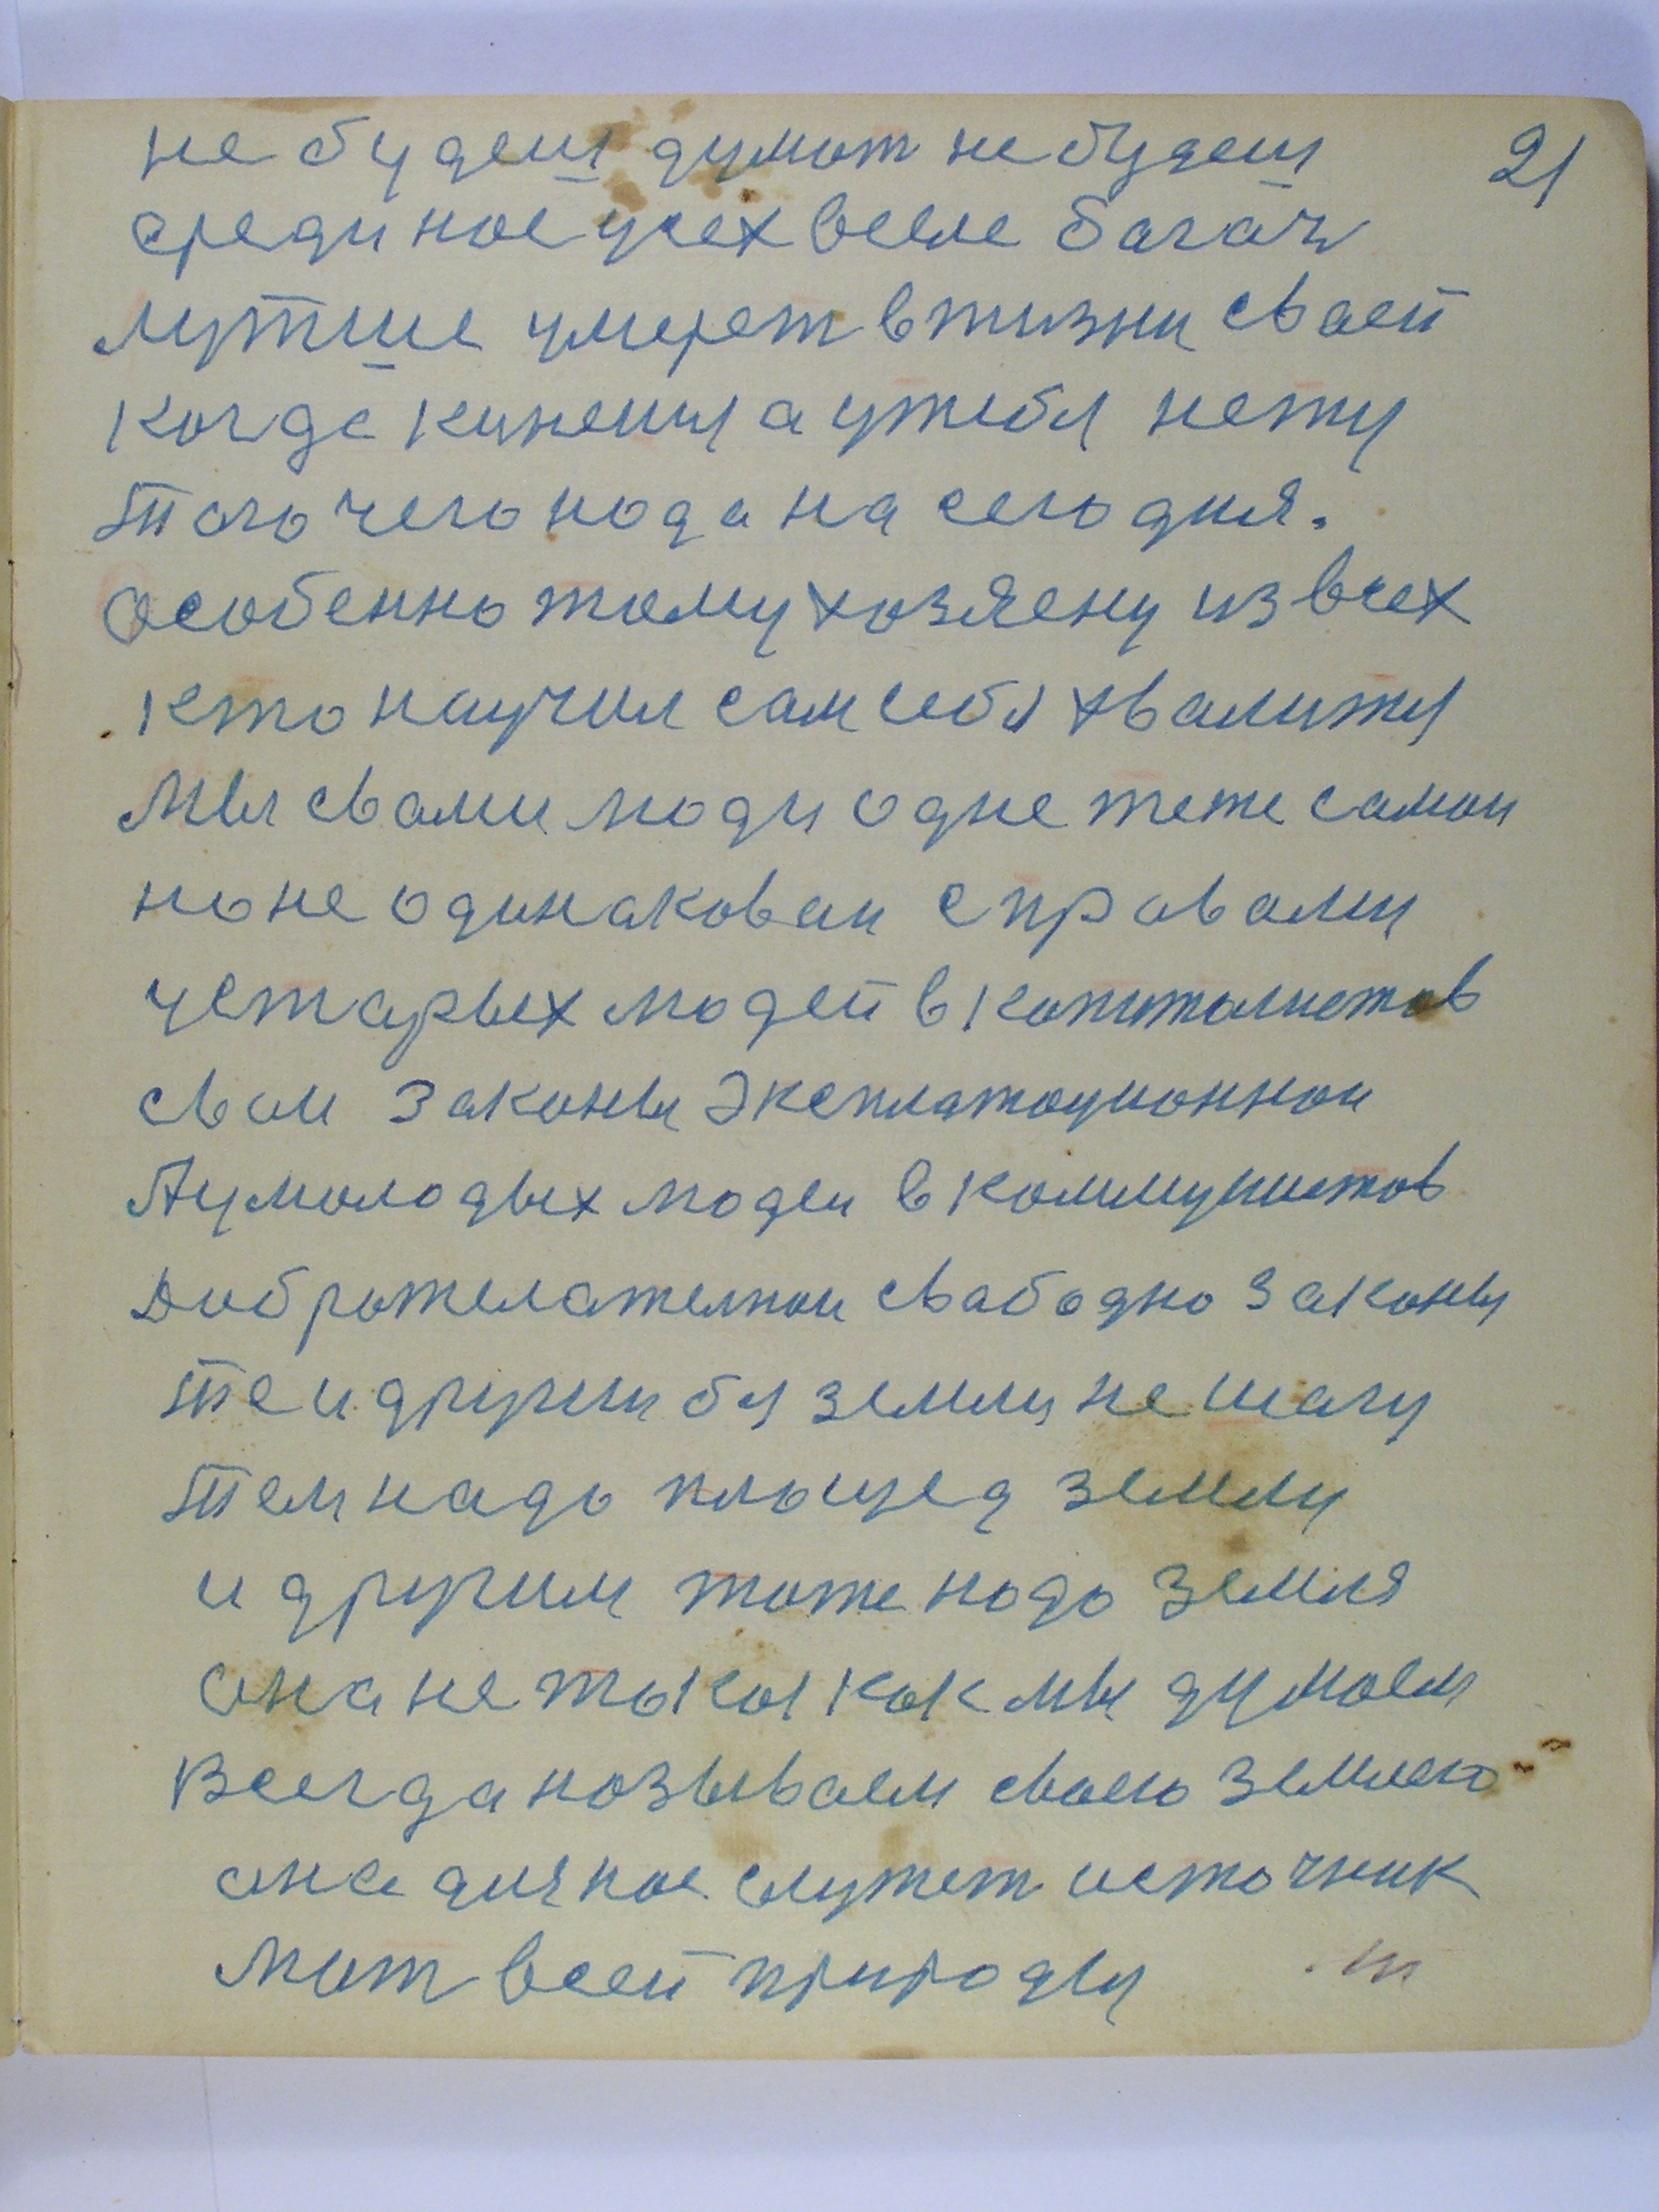 не будеш думат не будеш 21
среди нос усех вееле багач
Лутше умерет в жизни сваей
когда кинешя а у тебя нету
Того чего нада на сегодня.
Особенно тому хозяену из всех
кто научил сам себя хвалится
Мы с вами люди одне теже самои
но не одинаковаи с правами
у старых людей в капиталистов
Сваи законы Эксплатационнои
А у молодых людеи в коммунистов
Доброжелателнои свабодно законы
Те и другии бз земли не шагу
Тем надо площед земли
и другим тоже надо земля
Она не такая как мы думаем
Всегда называем своею землею
она для нас служет источник
Мат всей природы